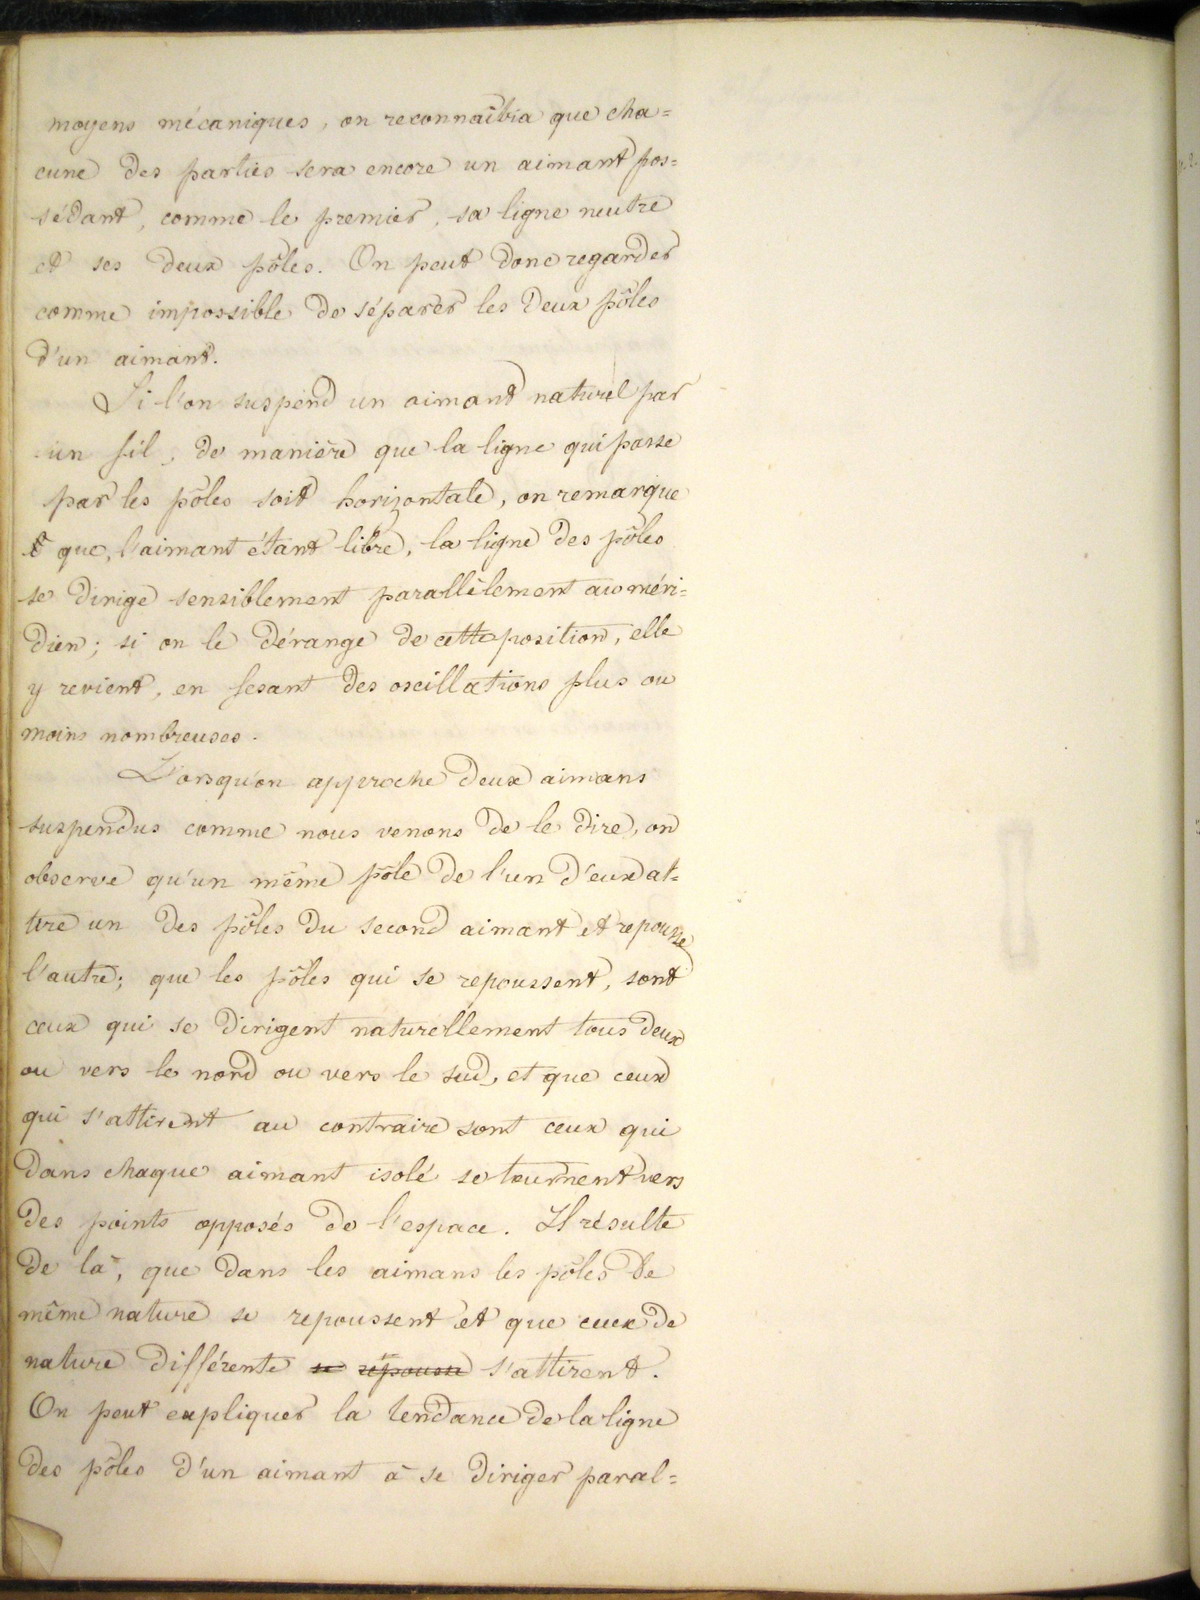 moyens mécaniques, on reconnaîtra que cha=
cune des parties sera encore un aimant pos=
sédant, comme le premier, sa ligne neutre
et ses deux pôles. On peut donc regarder
comme impossible de séparer les deux pôles
d'un aimant.
Si l'on suspend un aimant naturel par
un fil, de manière que la ligne qui passe
par les pôles soit horizontale, on remarque
que, l'aimant étant libre, la ligne des pôles
se dirige sensiblement parallèlement au méri=
dien; si on le dérange de cette position, elle
y revient, en fesant des oscillations plus ou
moins nombreuses.
Lorsqu'on approche deux aimans
suspendus comme nous venons de le dire, on
observe qu'un même pôle de l'un d'eux at=
tire un des pôles du second aimant et repousse
l'autre; que les pôles qui se repoussent, sont
ceux qui se dirigent naturellement tous deux
ou vers le nord ou vers le sud, et que ceux
qui s'attirent au contraire sont ceux qui
dans chaque aimant isolé se tournent vers
des points opposés de l'espace. Il résulte
de là, que dans les aimans les pôles de
même nature se repoussent et que ceux de
nature différente se repouss s'attirent.
On peut expliquer la tendance de la ligne
des pôles d'un aimant à se diriger paral=